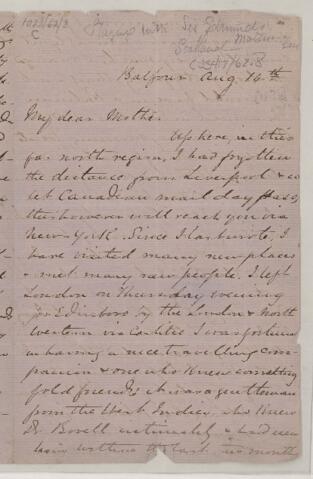 1022/62/3
C
Sir Edmund
Balfour Aug 16th
My dear Mother
Up here, in this
far north region, I had forgotten
the distance from Liverpool & so
let Canadian mail day pass,
this however will reach you via
New York. Since I last wrote, I
have visited many new places
& met many new people. I left
London on Thursday evening
for Edinboro by the London & North
Western via Carlisle I was fortunate
in having a nice travelling com-
panion & one who knew something
of old friends. He was a gentleman
from the West Indies, who knew
Dr Bovell intimately & had seen
him within the last month